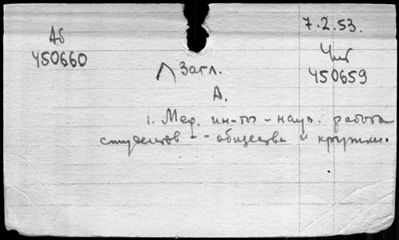 7.2.53.
Аб
450660
Чит
450659
Загл.
А.
1. Мед. ин-ты - науч. работа
студентов - - общества и кружки.